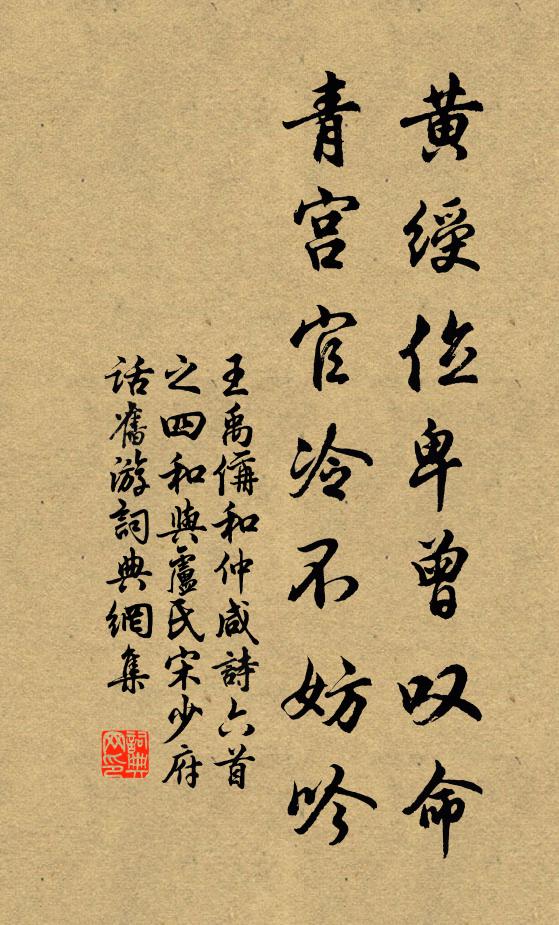 黄綬位卑曾叹命
青宫官冷不妨吟
王禹偁和仲咸詩六首
之四和與盧氏宋少府
話舊游詞典網集
詞典網印